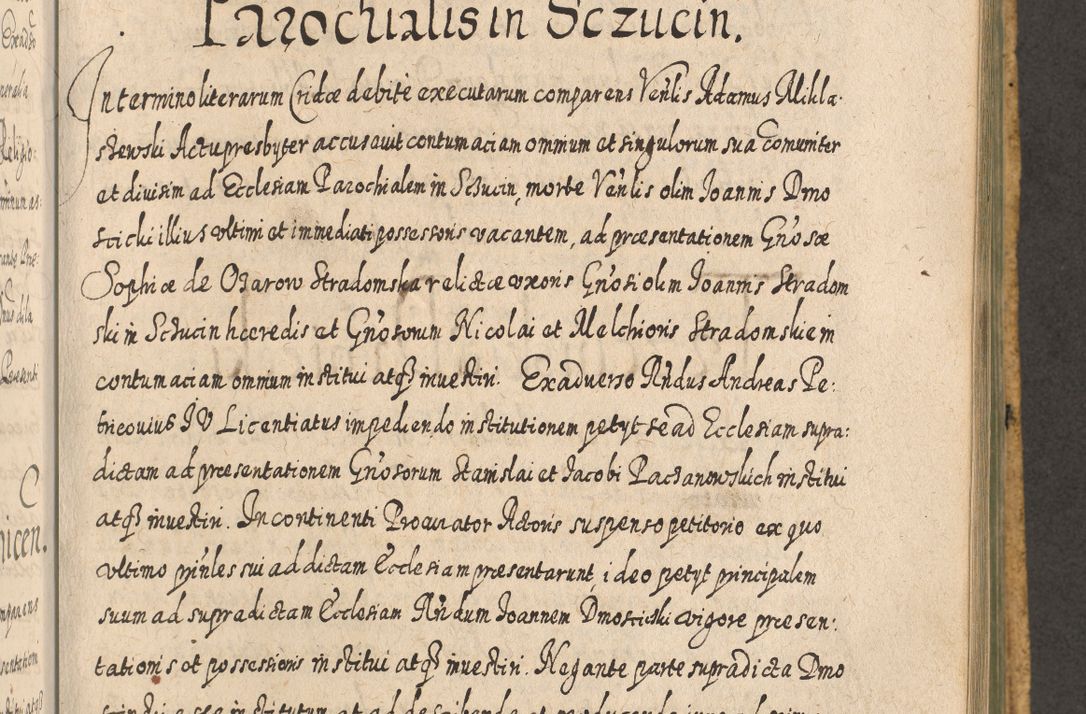 Parochialis in Sczucin.
In termino literarum Cridæ debite executarum comparens Ven̄lis Adamus Mikla-
szewski Actu presbyter accusavit contumaciam omnium et singulorum sua comuniter
et divisim ad Ecclesiam Parochialem in Sczucin, morte Ven̄lis olim Joannis Dmo
scicki illius vltimi et immediati possessoris vacantem, ad præsentationem Gn̄osæ
Sophiæ de Ozarow Stradomska relictæ vxoris Gn̄osi olim Joannis Stradom
ski in Sczucin hæredis et Gn̄osorum Nicolai et Melchioris Stradomskie in
contumaciam omnium institui atq3 investiri. Ex adverso Rn̄dus Andreas Pe:
tricovius JV Licentiatus impediendo institutionem petyt se ad Ecclesiam supra:
dictam ad præsentationem Gn̄osorum Stanislai et Jacobi Paczanowskich institui
atq3 investiri. In continenti Procurator Actoris suspenso petitorio ex quo
vltimo prin̄les sui ad dictam Ecclesiam præsentarunt, ideo petyt principalem
suum ad supradictam Ecclesiam Rn̄dum Joannem Dmoscicki vigore præsen:
tationis et possessionis institui atq3 investiri. Negante parte supradicta Dmo